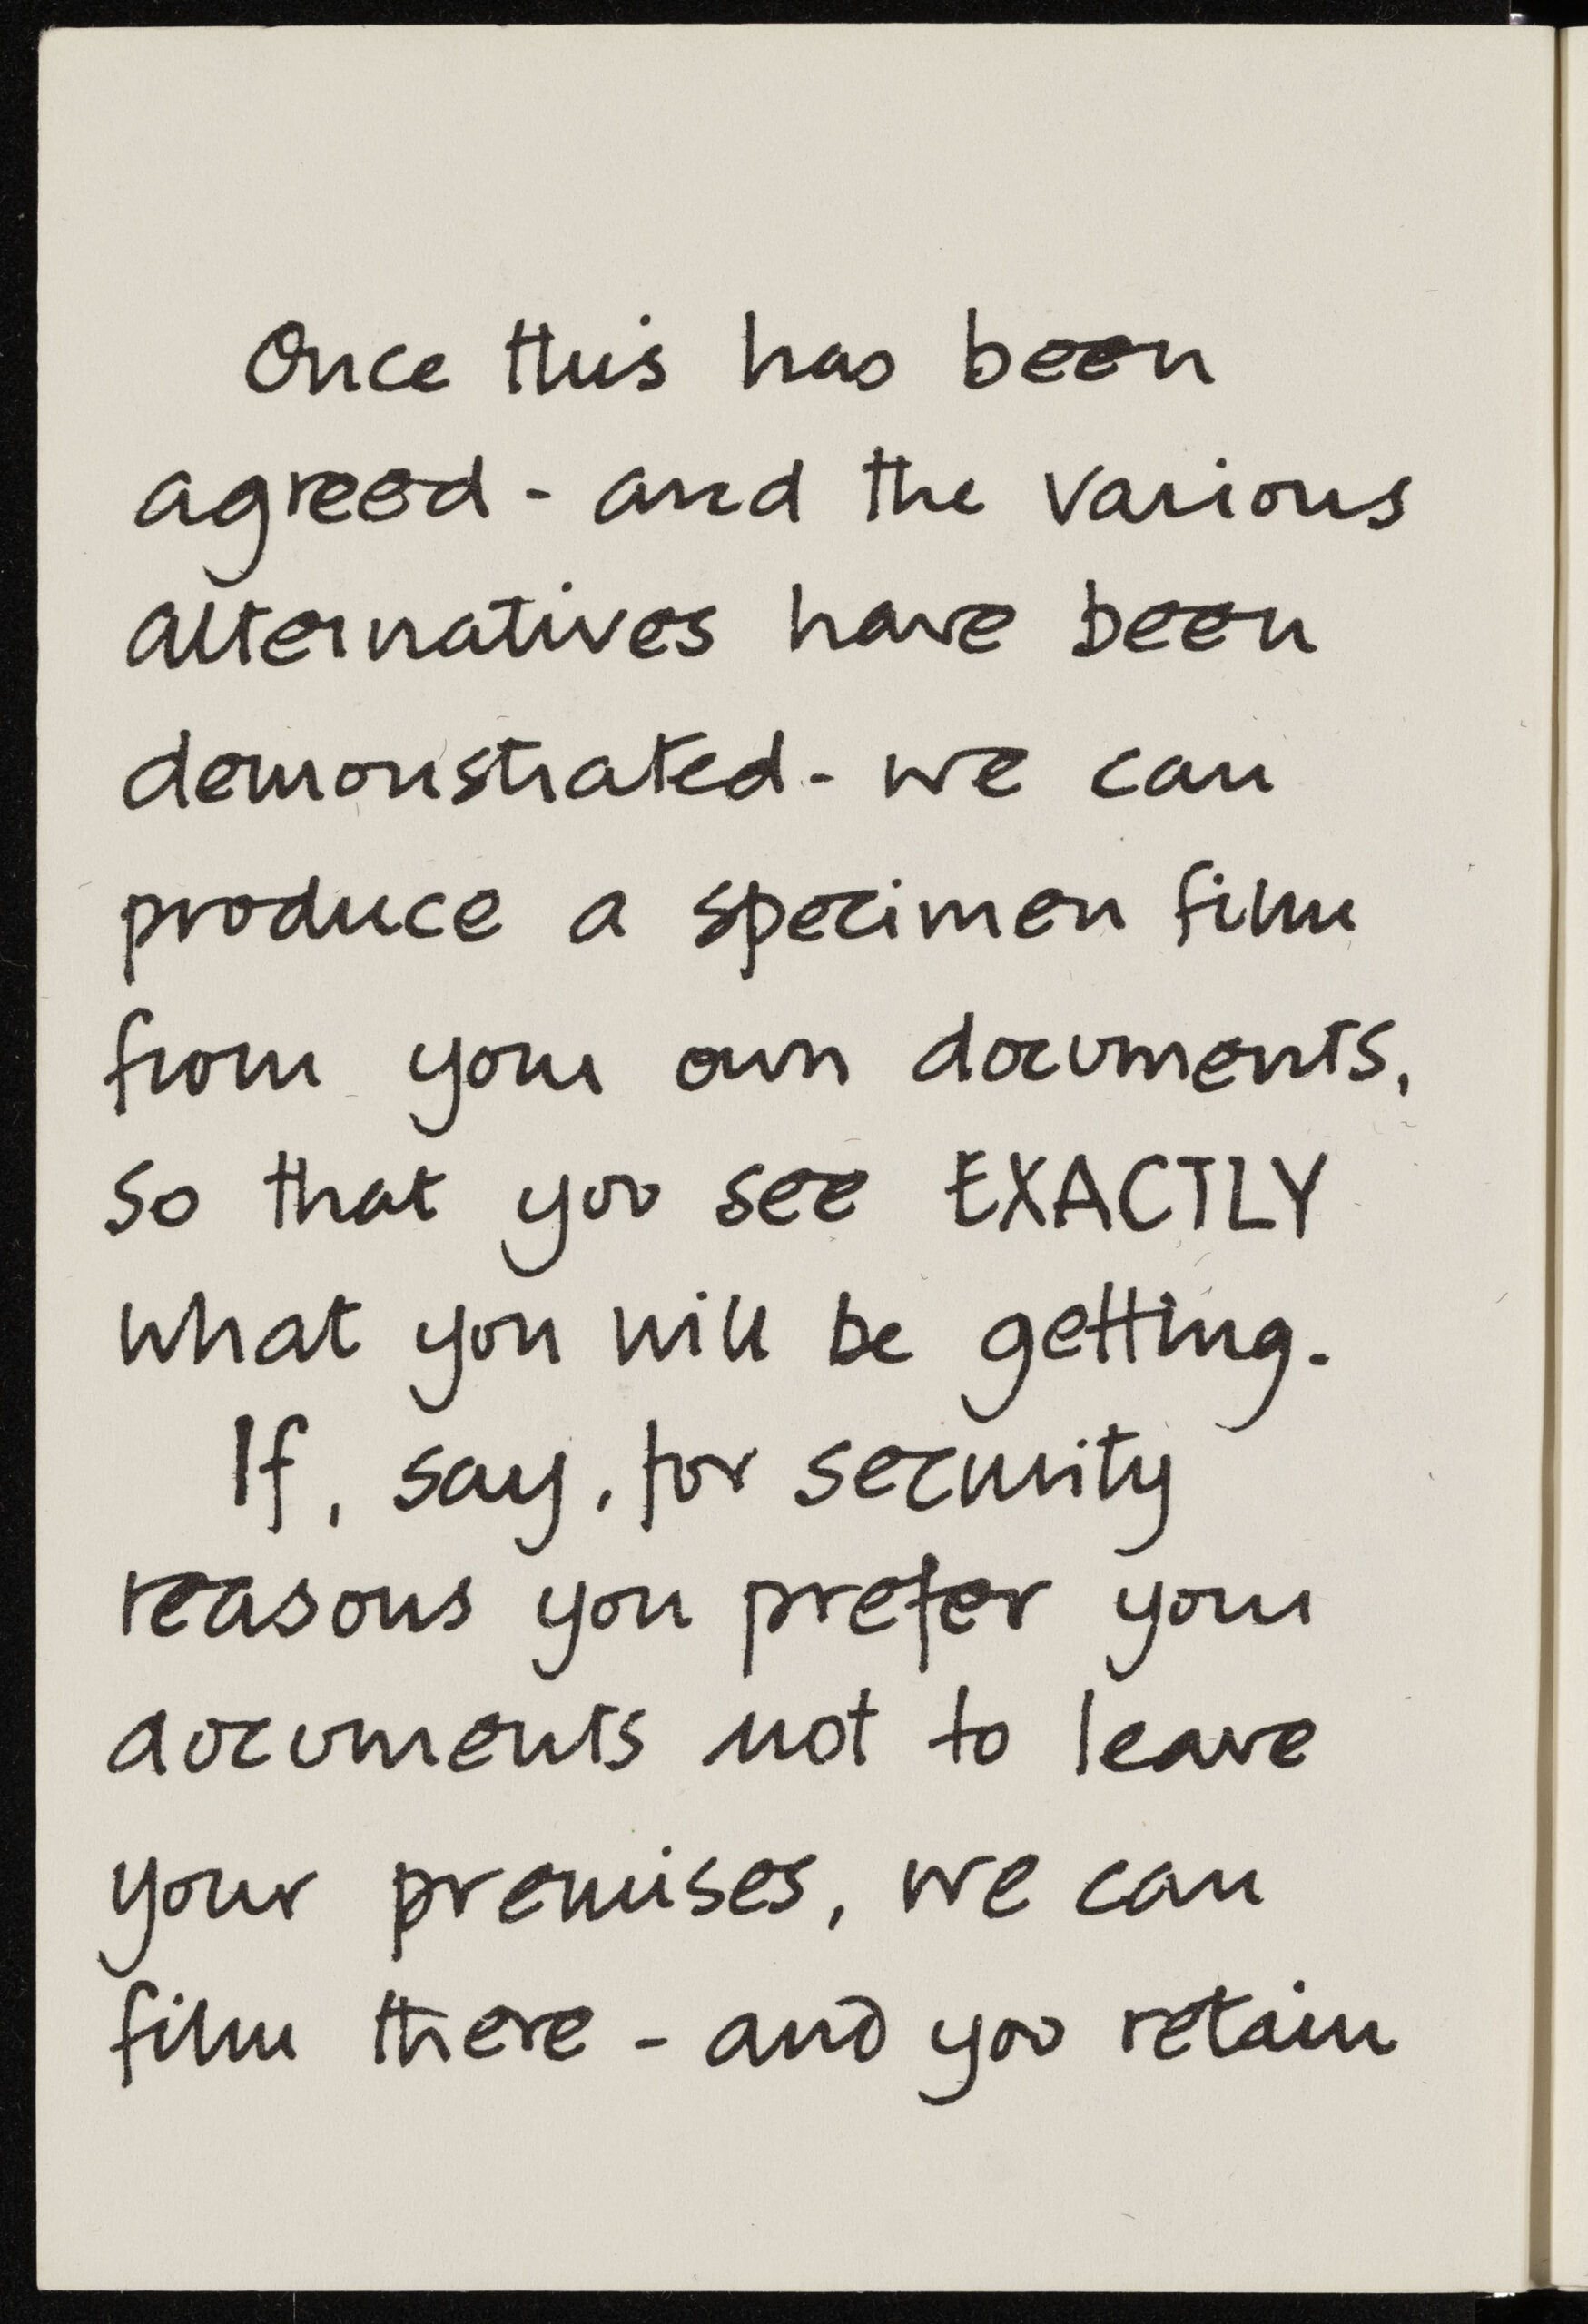 Once this has been
agreed - and the various
alternatives have been
demonstrated - we can
produce a specimen film
from your own documents,
so that you see EXACTLY
what you will be getting.
If, say, for security
reasons you prefer your
documents not to leave
your premises, we can
film there - and you retain